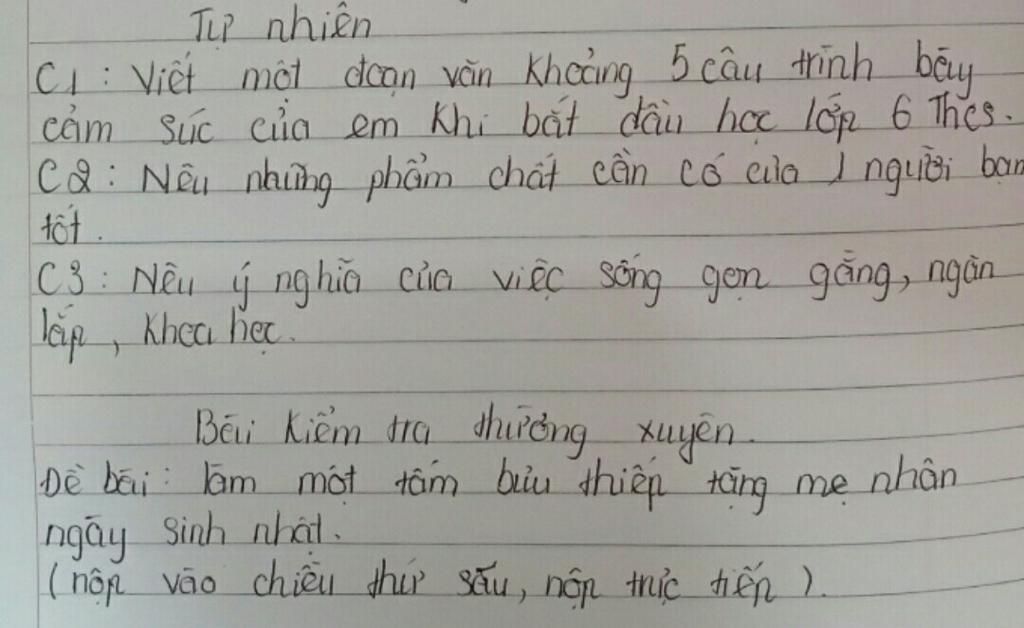 Tự nhiên
C1: Viết một đoạn văn khoảng 5 câu trình bày
cảm súc của em khi bắt đầu học lớp 6 Thcs.
C2: Nêu những phẩm chất cần có của 1 người bạn
tốt.
C3: Nêu ý nghĩa của việc sống gọn gàng, ngăn
lắp, khoa học.
Bài kiểm tra thường xuyên.
Đề bài: làm một tấm bưu thiếp tặng mẹ nhân
ngày sinh nhật.
(nộp vào chiều thứ sáu, nộp trực tiếp).